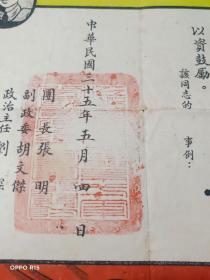 以資鼓勵。
該同志的 事例：
中華民國三十五年五月四日
團長張明
副政委胡文傑
政治主任劉
OPPO R15